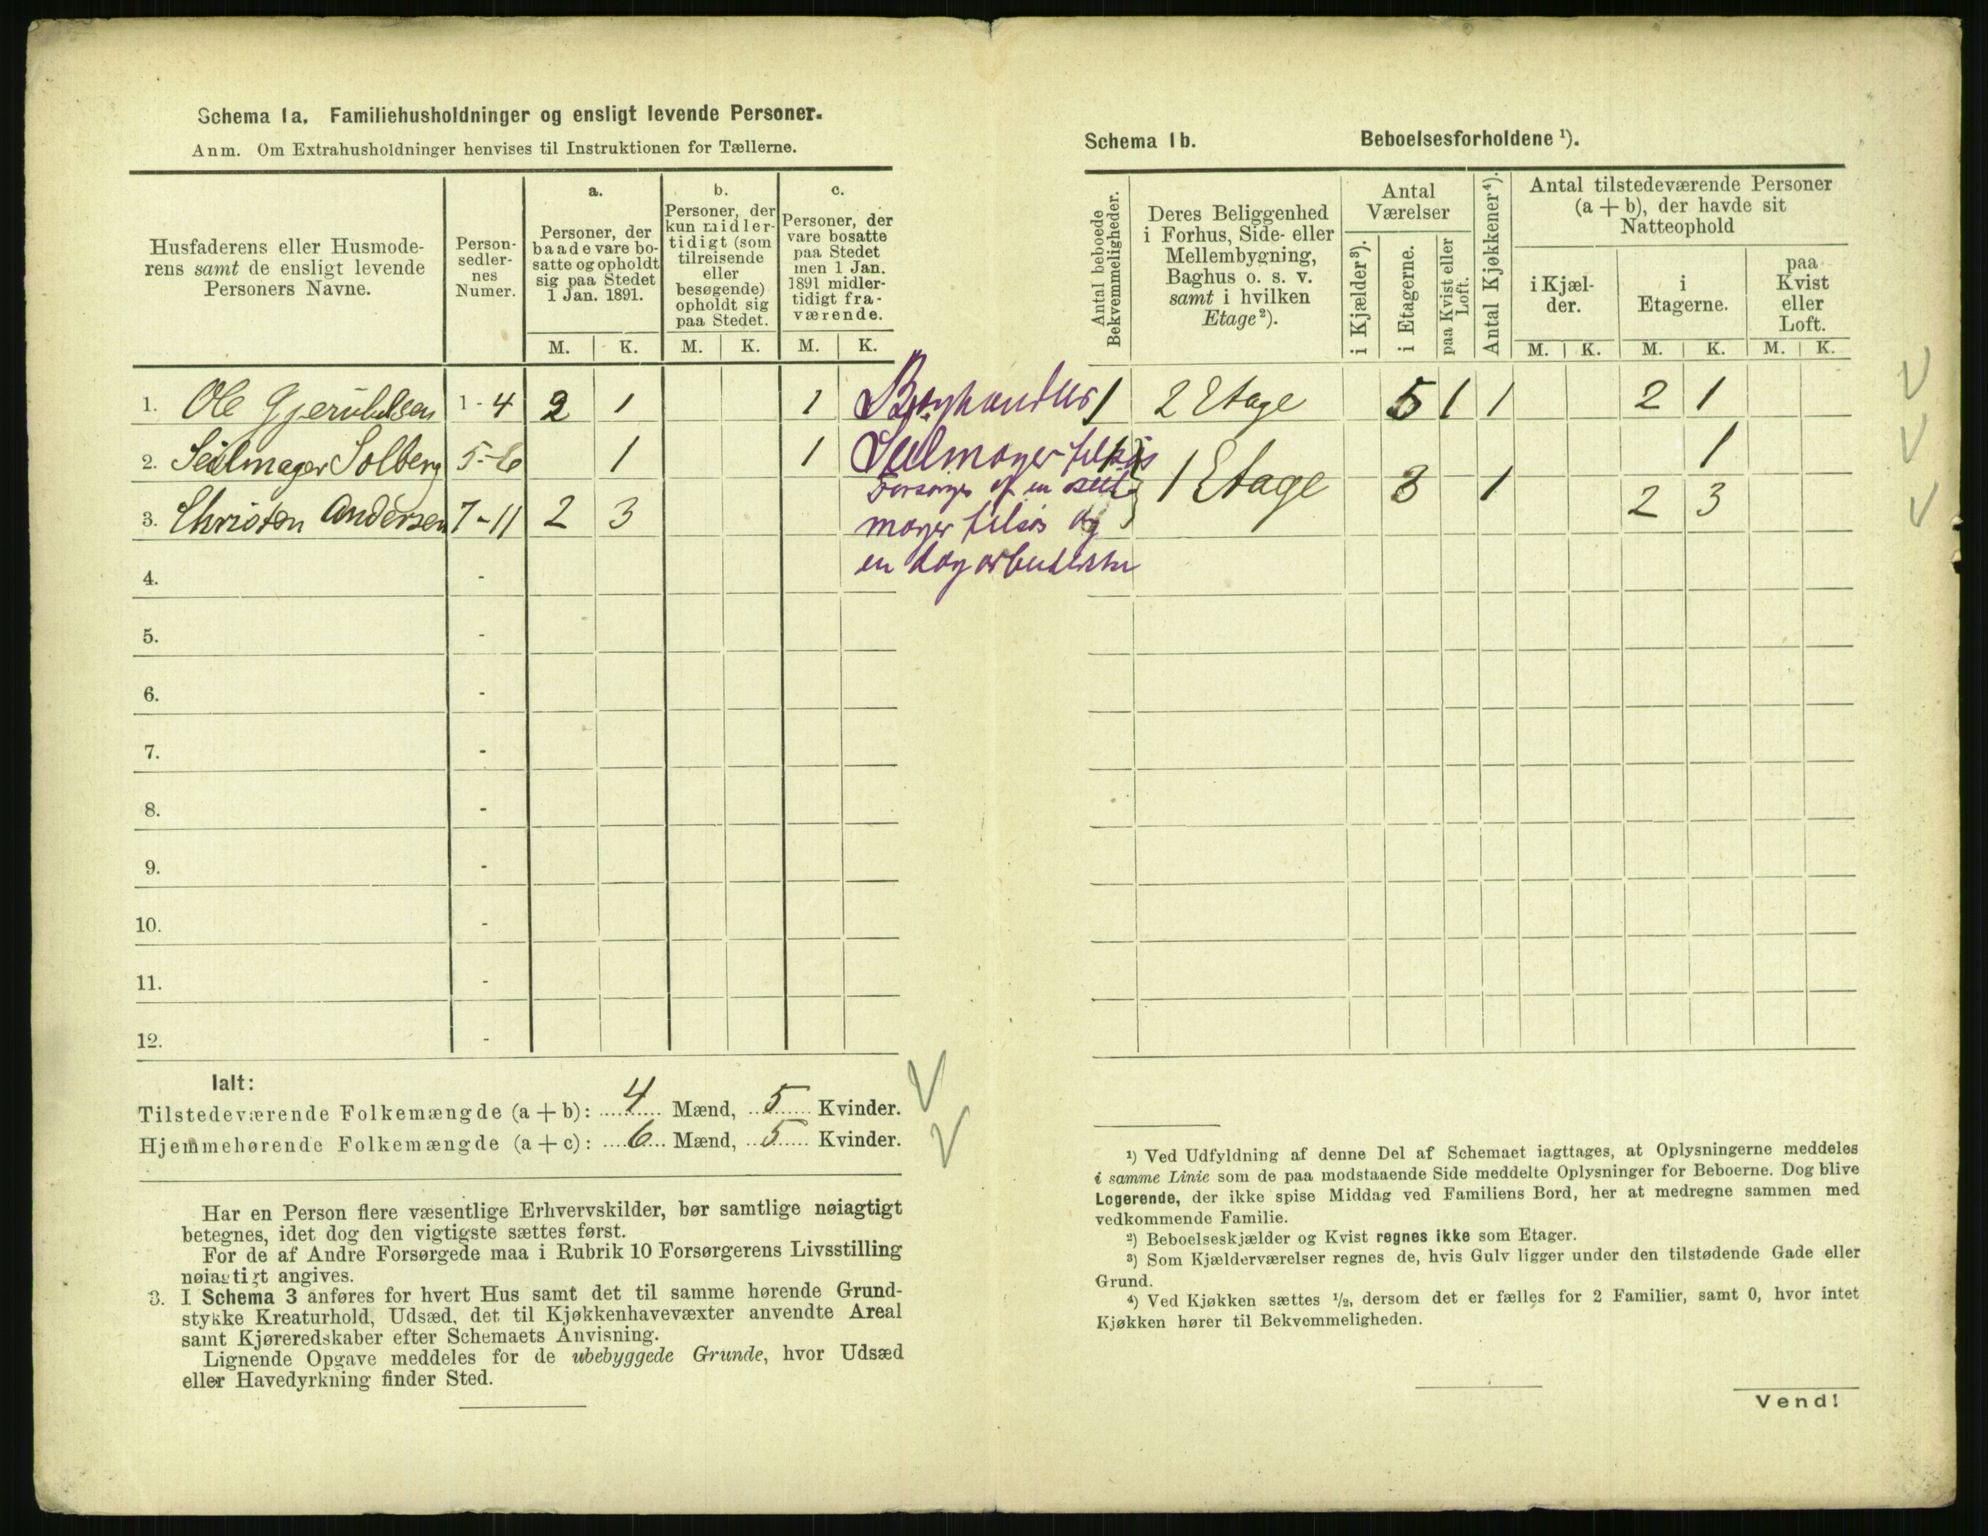 Schema 1a. Familiehusholdninger og ensligt levende Personer.
Anm. Om Extrahusholdninger henvises til Instruktionen for Tællerne.
Husfaderens eller Husmode-
rens samt de ensligt levende
Personers Navne.
Person-
sedler-
nes
Numer.
a.
Personer, der
baade vare bo-
satte og opholdt
sig paa Stedet
1 Jan. 1891.
b.
Personer, der
kun midler-
tidigt (som
tilreisende
eller
besøgende)
opholdt sig
paa Stedet.
c.
Personer, der
vare bosatte
paa Stedet
men 1 Jan.
1891 midler-
tidigt fra-
værende.
M. K. M. K. M. K.
1. Ole 1-4 2 1 1
2. Seilmager Solberg 5-6 1 1
3. Christen Andersen 7-11 2 3
4. -
5. -
6. -
7. -
8. -
9. -
10. -
11. -
12. -
Seilmager
Forsørges af en
en
Ialt:
Tilstedeværende Folkemængde (a + b): 4 Mænd, 5 Kvinder.
Hjemmehørende Folkemængde (a + c): 6 Mænd, 5 Kvinder.
Har en Person flere væsentlige Erhvervskilder, bør samtlige nøiagtigt
betegnes, idet dog den vigtigste sættes først.
For de af Andre Forsørgede maa i Rubrik 10 Forsørgerens Livsstilling
nøiagtigt angives.
3. I Schema 3 anføres for hvert Hus samt det til samme hørende Grund-
stykke Kreaturhold, Udsæd, det til Kjøkkenhavevæxter anvendte Areal
samt Kjøreredskaber efter Schemaets Anvisning.
Lignende Opgave meddeles for de ubebyggede Grunde, hvor Udsæd
eller Havedyrkning finder Sted.
Schema 1b. Beboelsesforholdene ¹).
Antal beboede
Bekvemmeligheder.
Deres Beliggenhed
i Forhus, Side- eller
Mellembygning,
Baghus o. s. v.
samt i hvilken
Etage ²).
Antal
Værelser
i Kjælder ³).
i Etagerne.
paa Kvist eller
Loft.
Antal Kjøkkener ⁴).
Antal tilstedeværende Personer
(a + b), der havde sit
Natteophold
i Kjæl-
der.
i
Etagerne.
paa
Kvist
eller
Loft.
M. K. M. K. M. K.
1 2 Etage 5 1 1 2 1
1 1
1 Etage 3 1 2 3
¹) Ved Udfyldning af denne Del af Schemaet iagttages, at Oplysningerne meddeles
i samme Linie som de paa modstaaende Side meddelte Oplysninger for Beboerne. Dog blive
Logerende, der ikke spise Middag ved Familiens Bord, her at medregne sammen med
vedkommende Familie.
²) Beboelseskjælder og Kvist regnes ikke som Etager.
³) Som Kjælderværelser regnes de, hvis Gulv ligger under den tilstødende Gade eller
Grund.
⁴) Ved Kjøkken sættes ½, dersom det er fælles for 2 Familier, samt 0, hvor intet
Kjøkken hører til Bekvemmeligheden.
Vend!